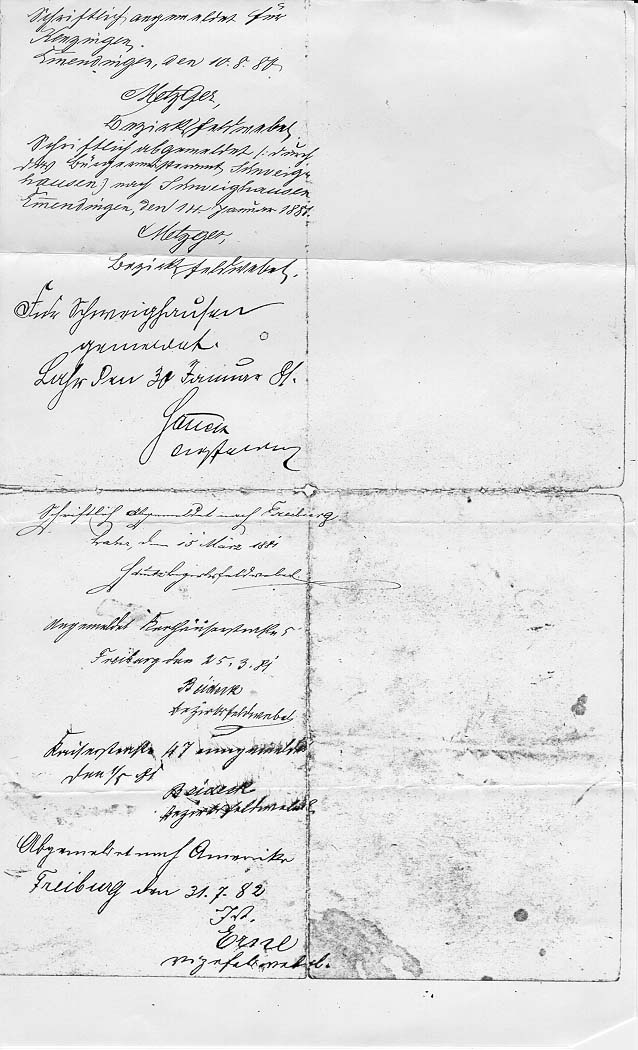 Schriftlich angemeldet für
Kenzingen.
Emmendingen, den 10. 8. 80.
Metzger,
Bezirksfeldwebel
Schriftlich abgemeldet /: durch
das Bürgermeisteramt Schweig-
hausen) nach Schweighausen
Emmendingen, den 14. Januar 1881.
Metzger,
Bezirksfeldwebel.
Für Schweighausen
gemeldet.
Lahr den 30 Januar 81.
Schriftlich abgemeldet nach Freiburg
Lahr, den 15 März 1881
Bezirksfeldwebel
Angemeldet Karthäuserstraße 5
Freiburg den 25. 3. 81
Beideck
Bezirksfeldwebel
Kaiserstraße 47 umgemeldet
den 1/5 81
Beideck
Bezirksfeldwebel
Abgemeldet nach Amerika
Freiburg den 31. 7. 82
Vizefeldwebel.